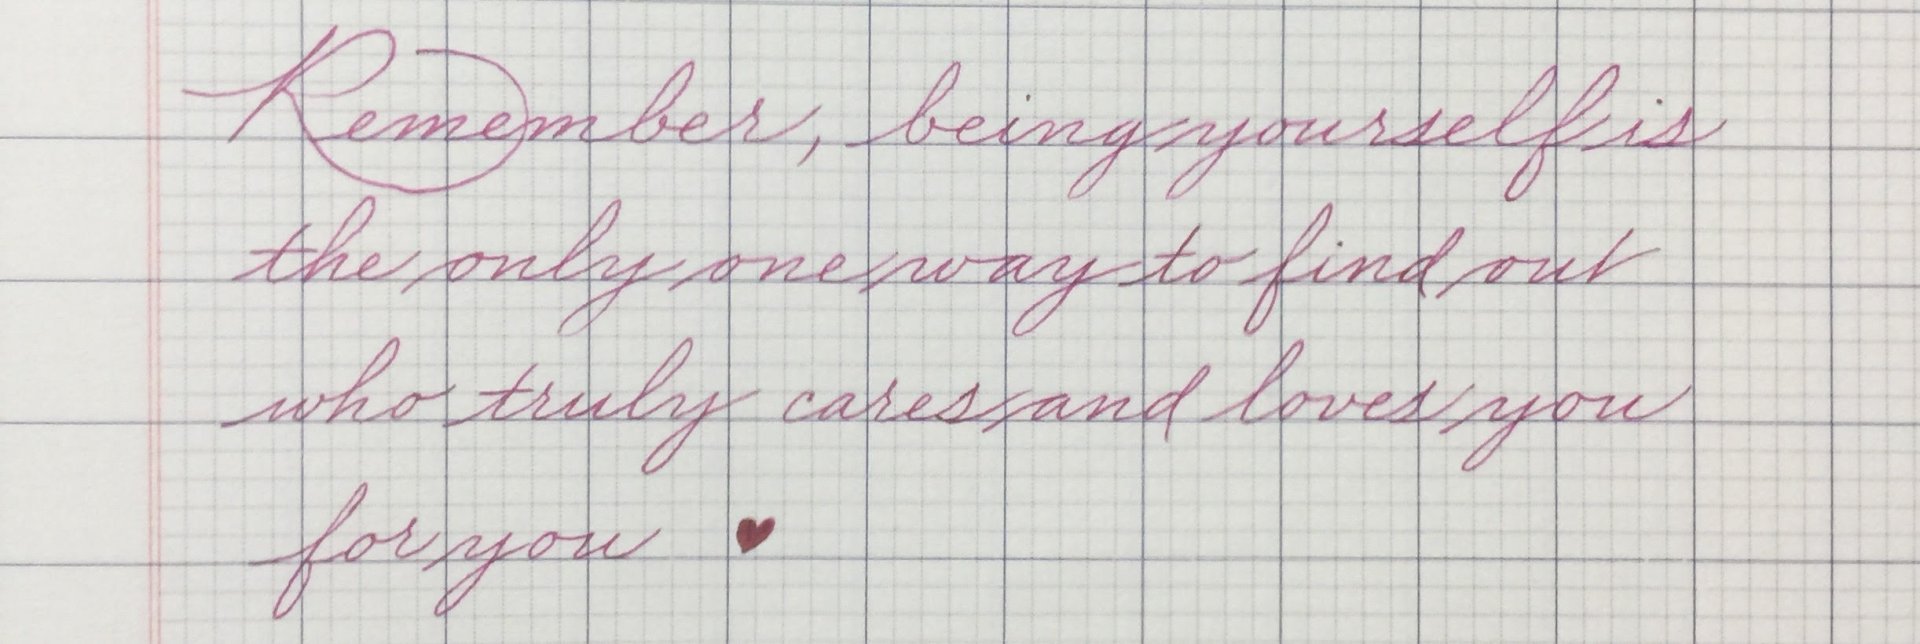 Remember, being yourself is
the only one way to find out
who truly cares and loves you
for you ♥